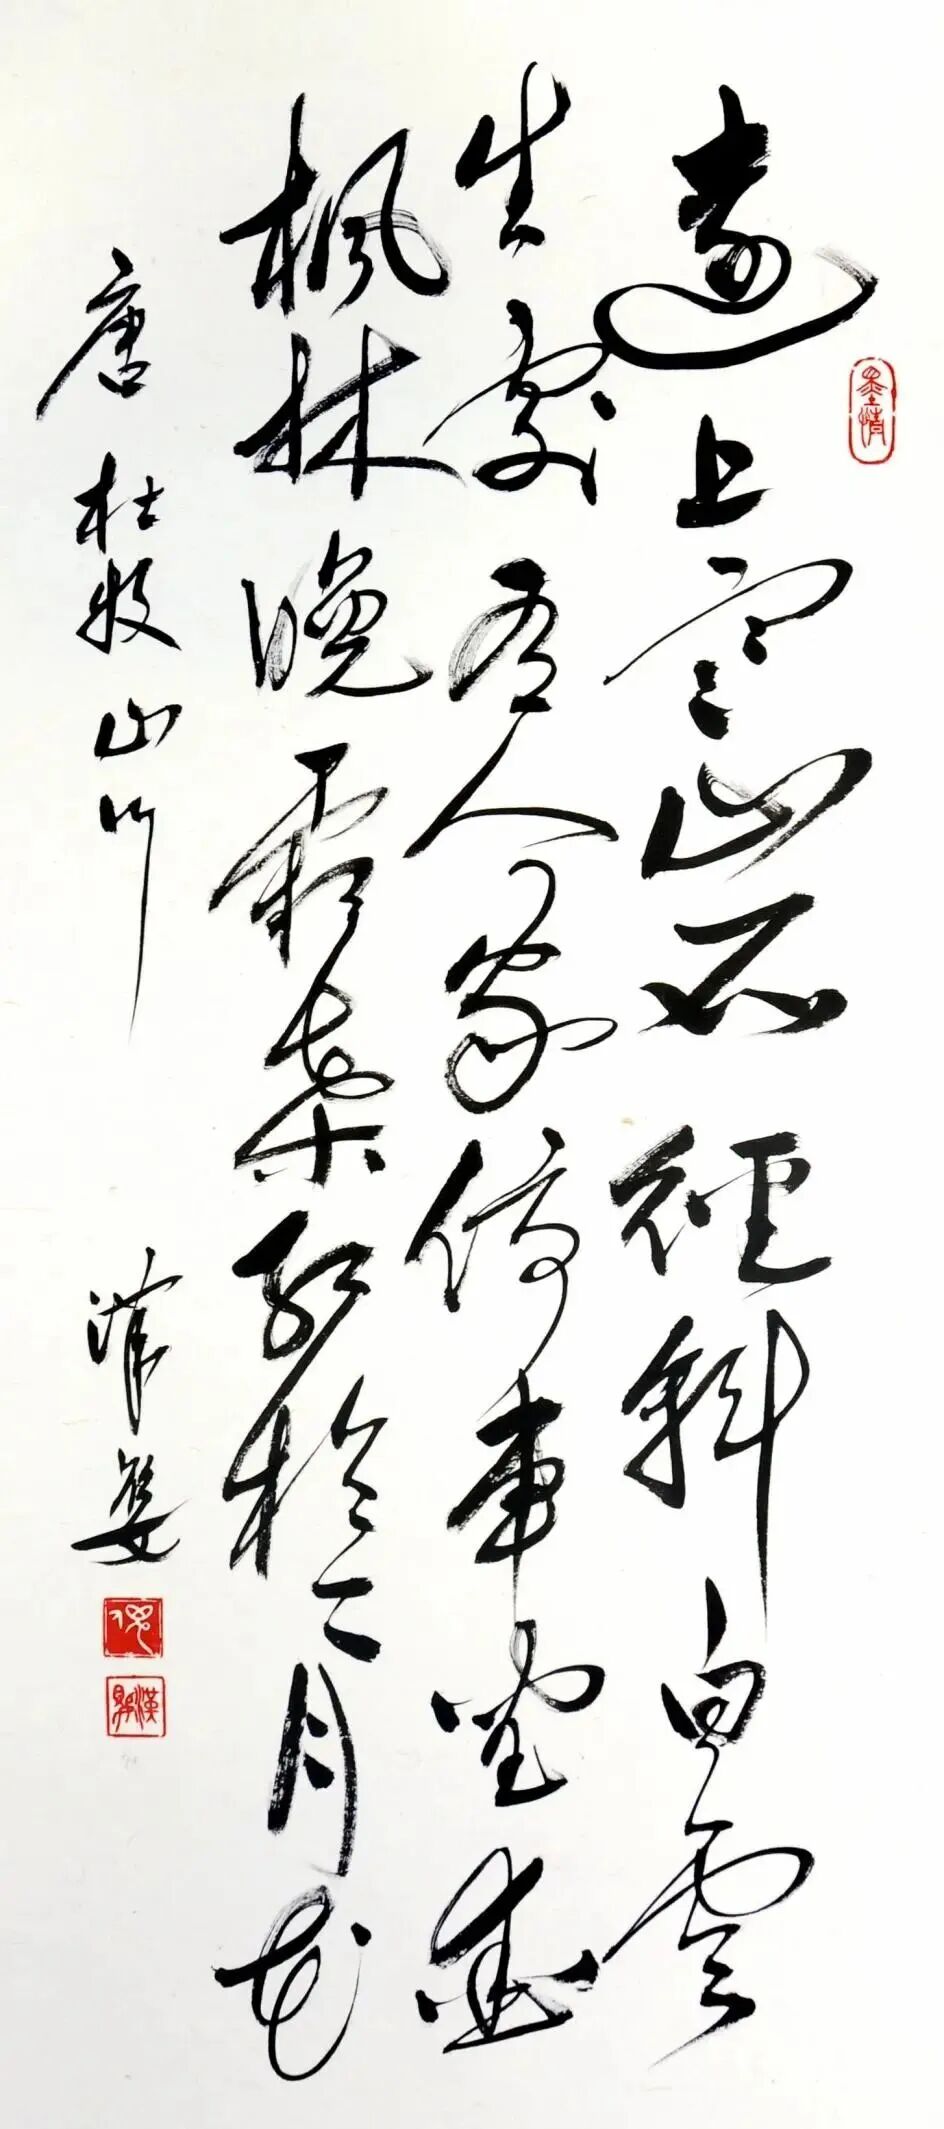 遠上寒山石徑斜白雲
生處有人家停車坐愛
楓林晚霜葉紅於二月花
唐杜牧山行 漢
墨情